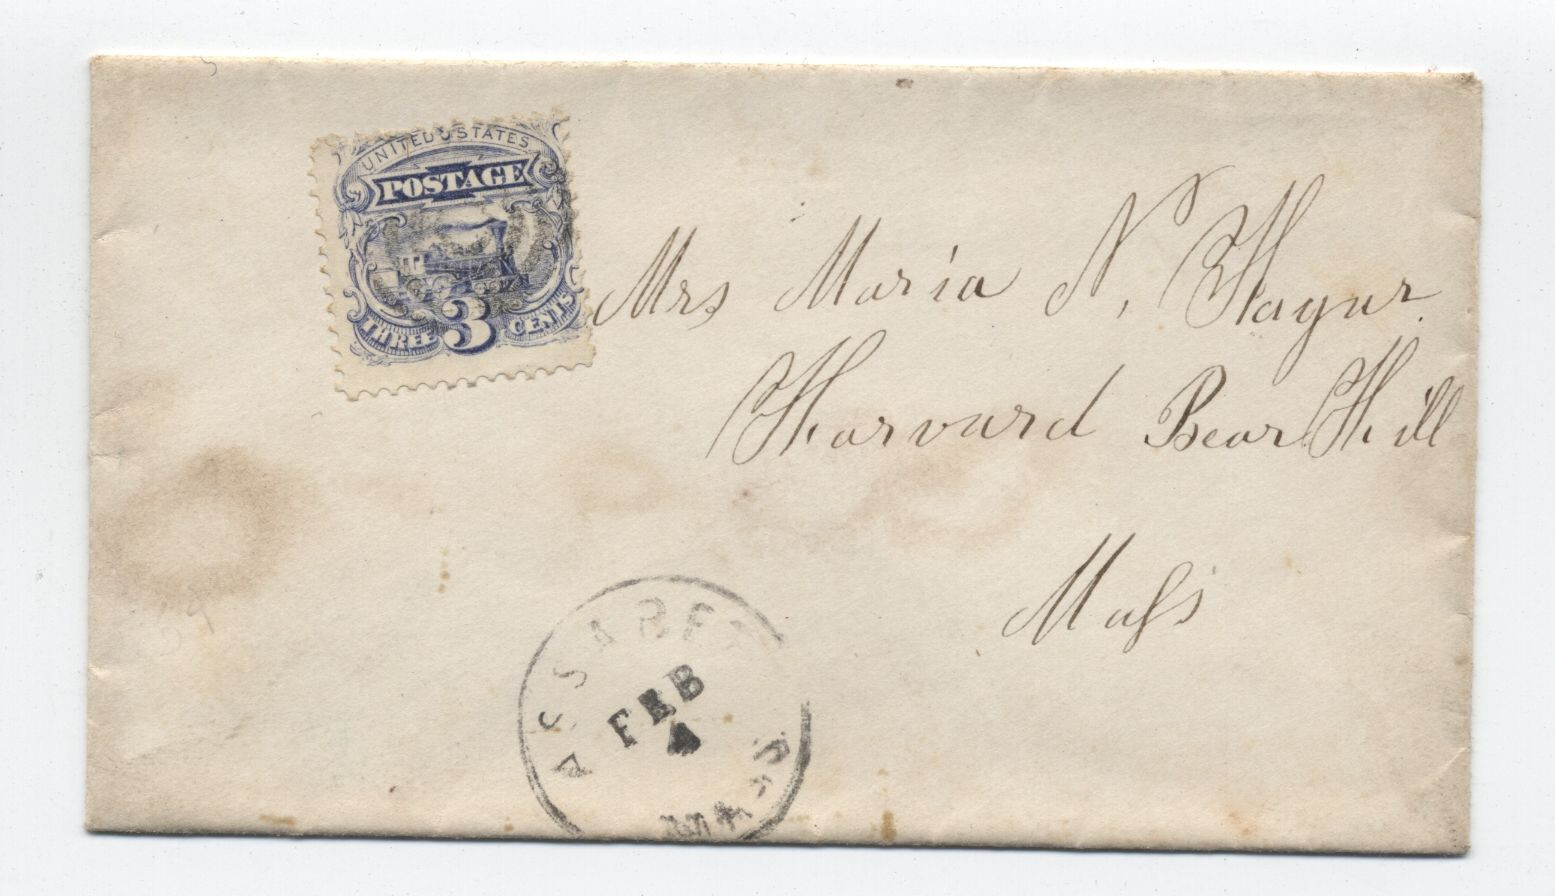 UNITED STATES
POSTAGE
THREE 3 CENTS
Mrs Maria N. Hayur.
Harvard Bear Hill
Mass
ASSABET
FEB
4
MASS